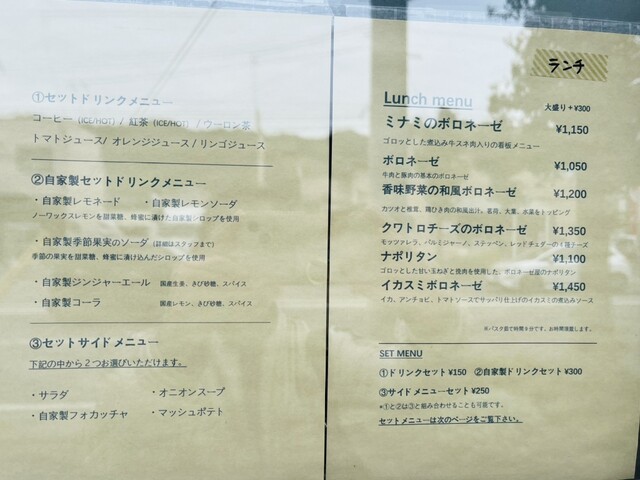 ①セットドリンクメニュー
コーヒー (ICE/HOT) / 紅茶 (ICE/HOT) / ウーロン茶
トマトジュース/ オレンジジュース / リンゴジュース
②自家製セットドリンクメニュー
・自家製レモネード ・自家製レモンソーダ
ノーワックスレモンを甜菜糖、蜂蜜に漬けた自家製シロップを使用
・自家製季節果実のソーダ (詳細はスタッフまで)
季節の果実を甜菜糖、蜂蜜に漬け込んだシロップを使用
・自家製ジンジャーエール 国産生姜、きび砂糖、スパイス
・自家製コーラ 国産レモン、きび砂糖、スパイス
③セットサイドメニュー
下記の中から２つお選びいただけます。
・サラダ ・オニオンスープ
・自家製フォカッチャ ・マッシュポテト
ランチ
Lunch menu 大盛り＋¥300
ミナミのボロネーゼ ¥1,150
ゴロッとした煮込み牛スネ肉入りの看板メニュー
ボロネーゼ ¥1,050
牛肉と豚肉の基本のボロネーゼ
香味野菜の和風ボロネーゼ ¥1,200
カツオと椎茸、鶏ひき肉の和風出汁。茗荷、大葉、水菜をトッピング
クワトロチーズのボロネーゼ ¥1,350
モッツァレラ、パルミジャーノ、ステッペン、レッドチェダーの4種チーズ
ナポリタン ¥1,100
ゴロッとした甘い玉ねぎと挽肉を使用した、ボロネーゼ屋のナポリタン
イカスミボロネーゼ ¥1,450
イカ、アンチョビ、トマトソースでサッパリ仕上げのイカスミの煮込みソース
※パスタ茹で時間８分です。お時間頂戴します。
SET MENU
①ドリンクセット¥150 ②自家製ドリンクセット¥300
③サイドメニューセット¥250
*①と②は③と組み合わせることも可能です。
セットメニューは次のページをご覧下さい。